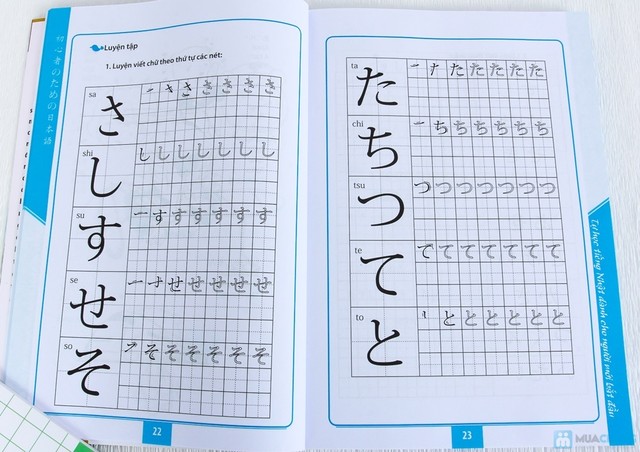 初心者のための日本語
Luyện tập
1. Luyện viết chữ theo thứ tự các nét:
sa
さ
shi
し し し し し し し し
su
す す す す す す す
se
せ せ せ せ せ せ
so
そ そ そ そ そ そ そ
22
ta
た た た た た た
chi
ち ち ち ち ち ち ち
tsu
つ つ つ つ つ つ つ つ
te
て て て て て て て て
to
と と と と と と と
23
Tự học tiếng Nhật dành cho người mới bắt đầu